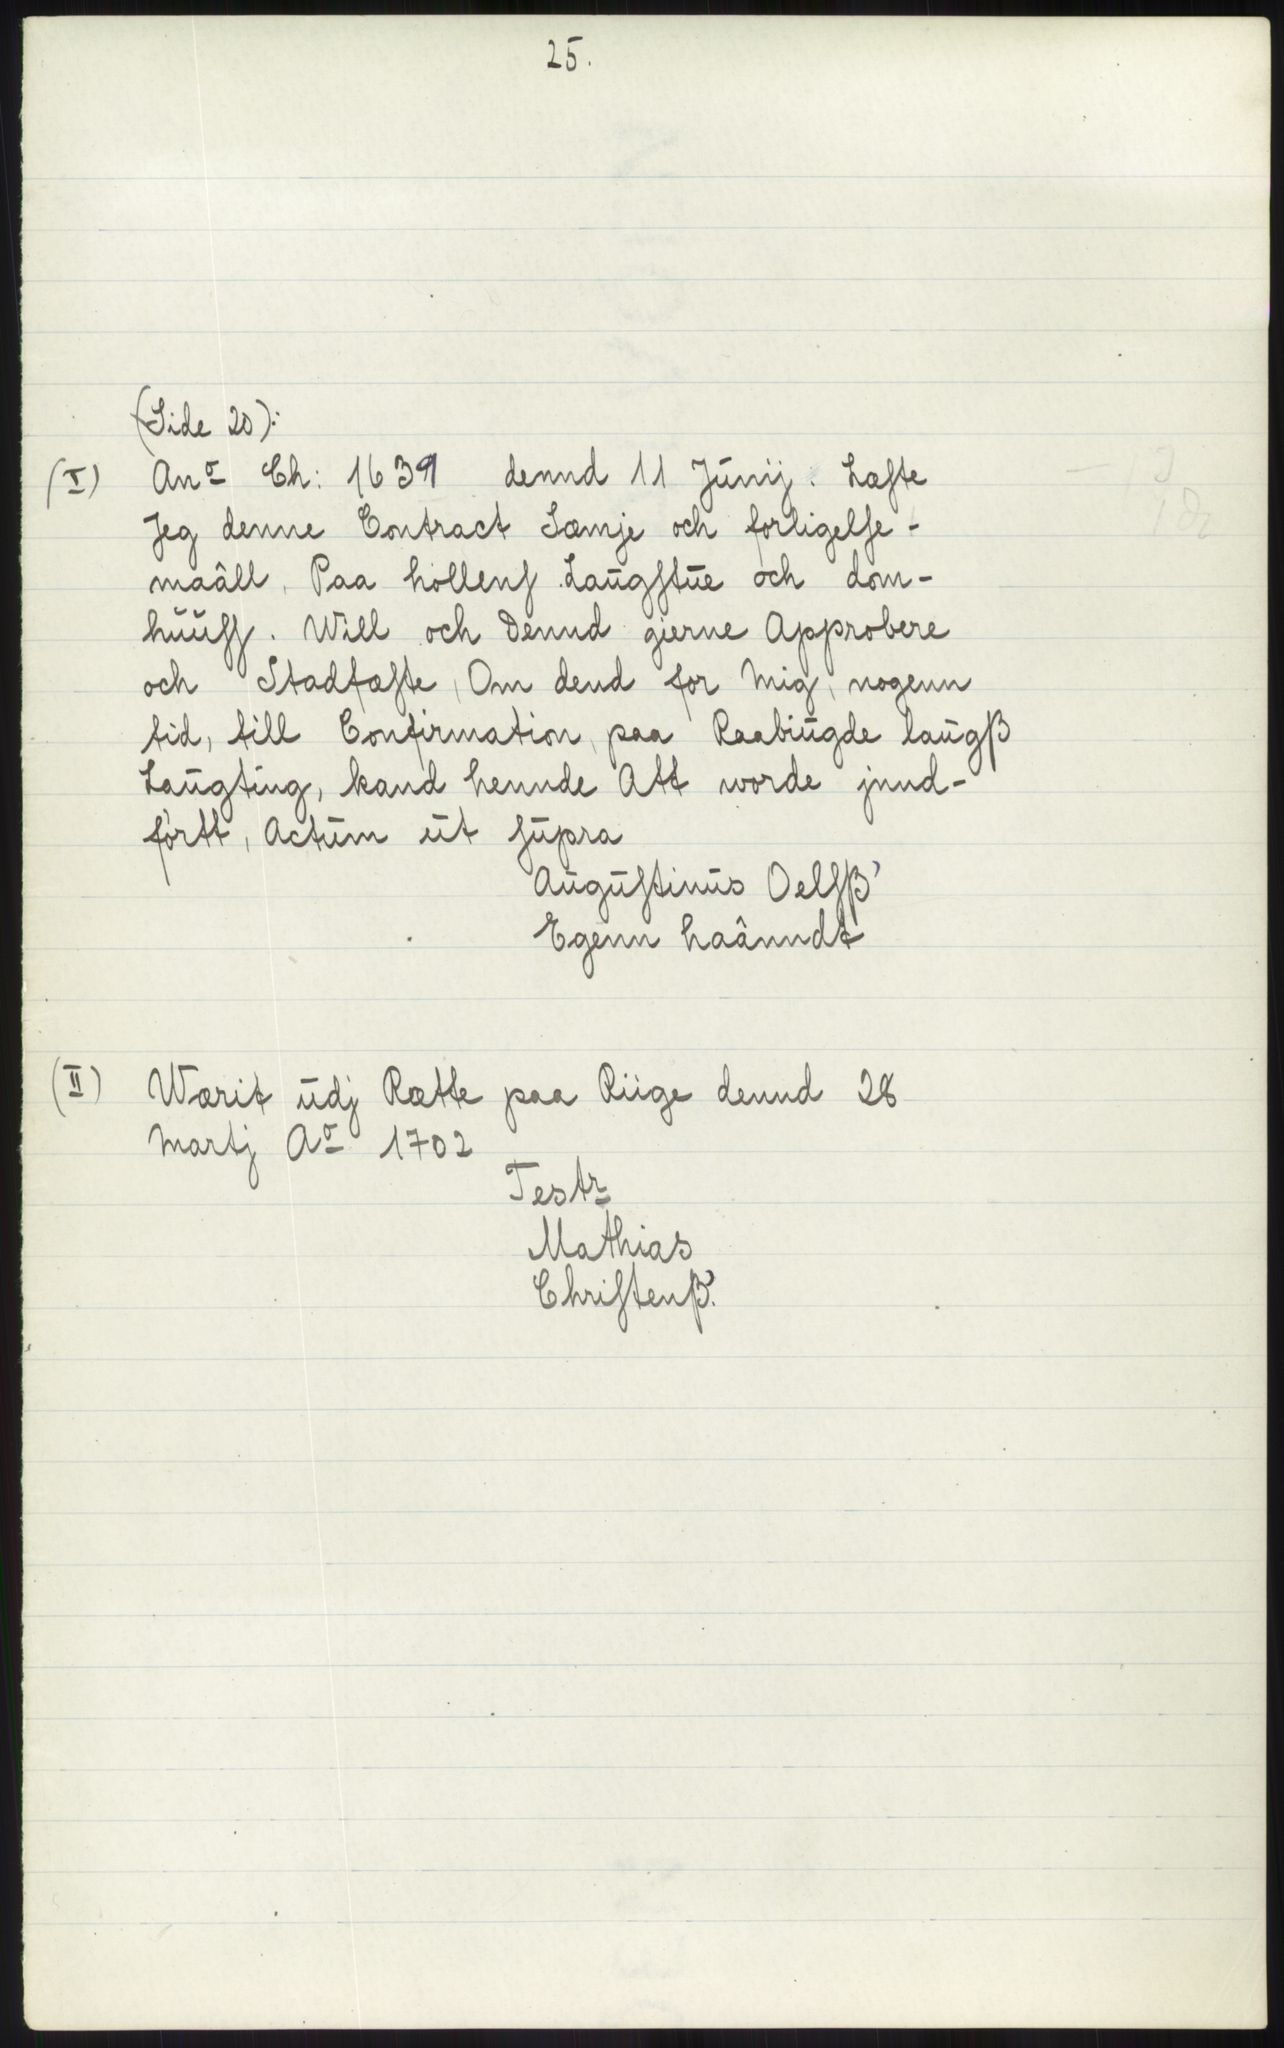 25.
(Side 20):
(I) Anº Ch: 1639 dennd 11 Junij. Læste
Jeg denne Contract Sæmje och forligelse-
maâll, Paa hollens Laugstue och dom-
huuss. Will och Dennd gierne Approbere
och Stadfæste, Om dend for Mig, nogenn
tid, till Confirmation, paa Raabiugde laugß
Laugting, kand hennde Att worde jnnd-
førtt, Actum ut supra
Augustinus Oelsß'
Egenn haânndt
(II) Wærit udj Rætte paa Riige dennd 28
Martj Aº 1702
Testr
Mathias
Christenß'.